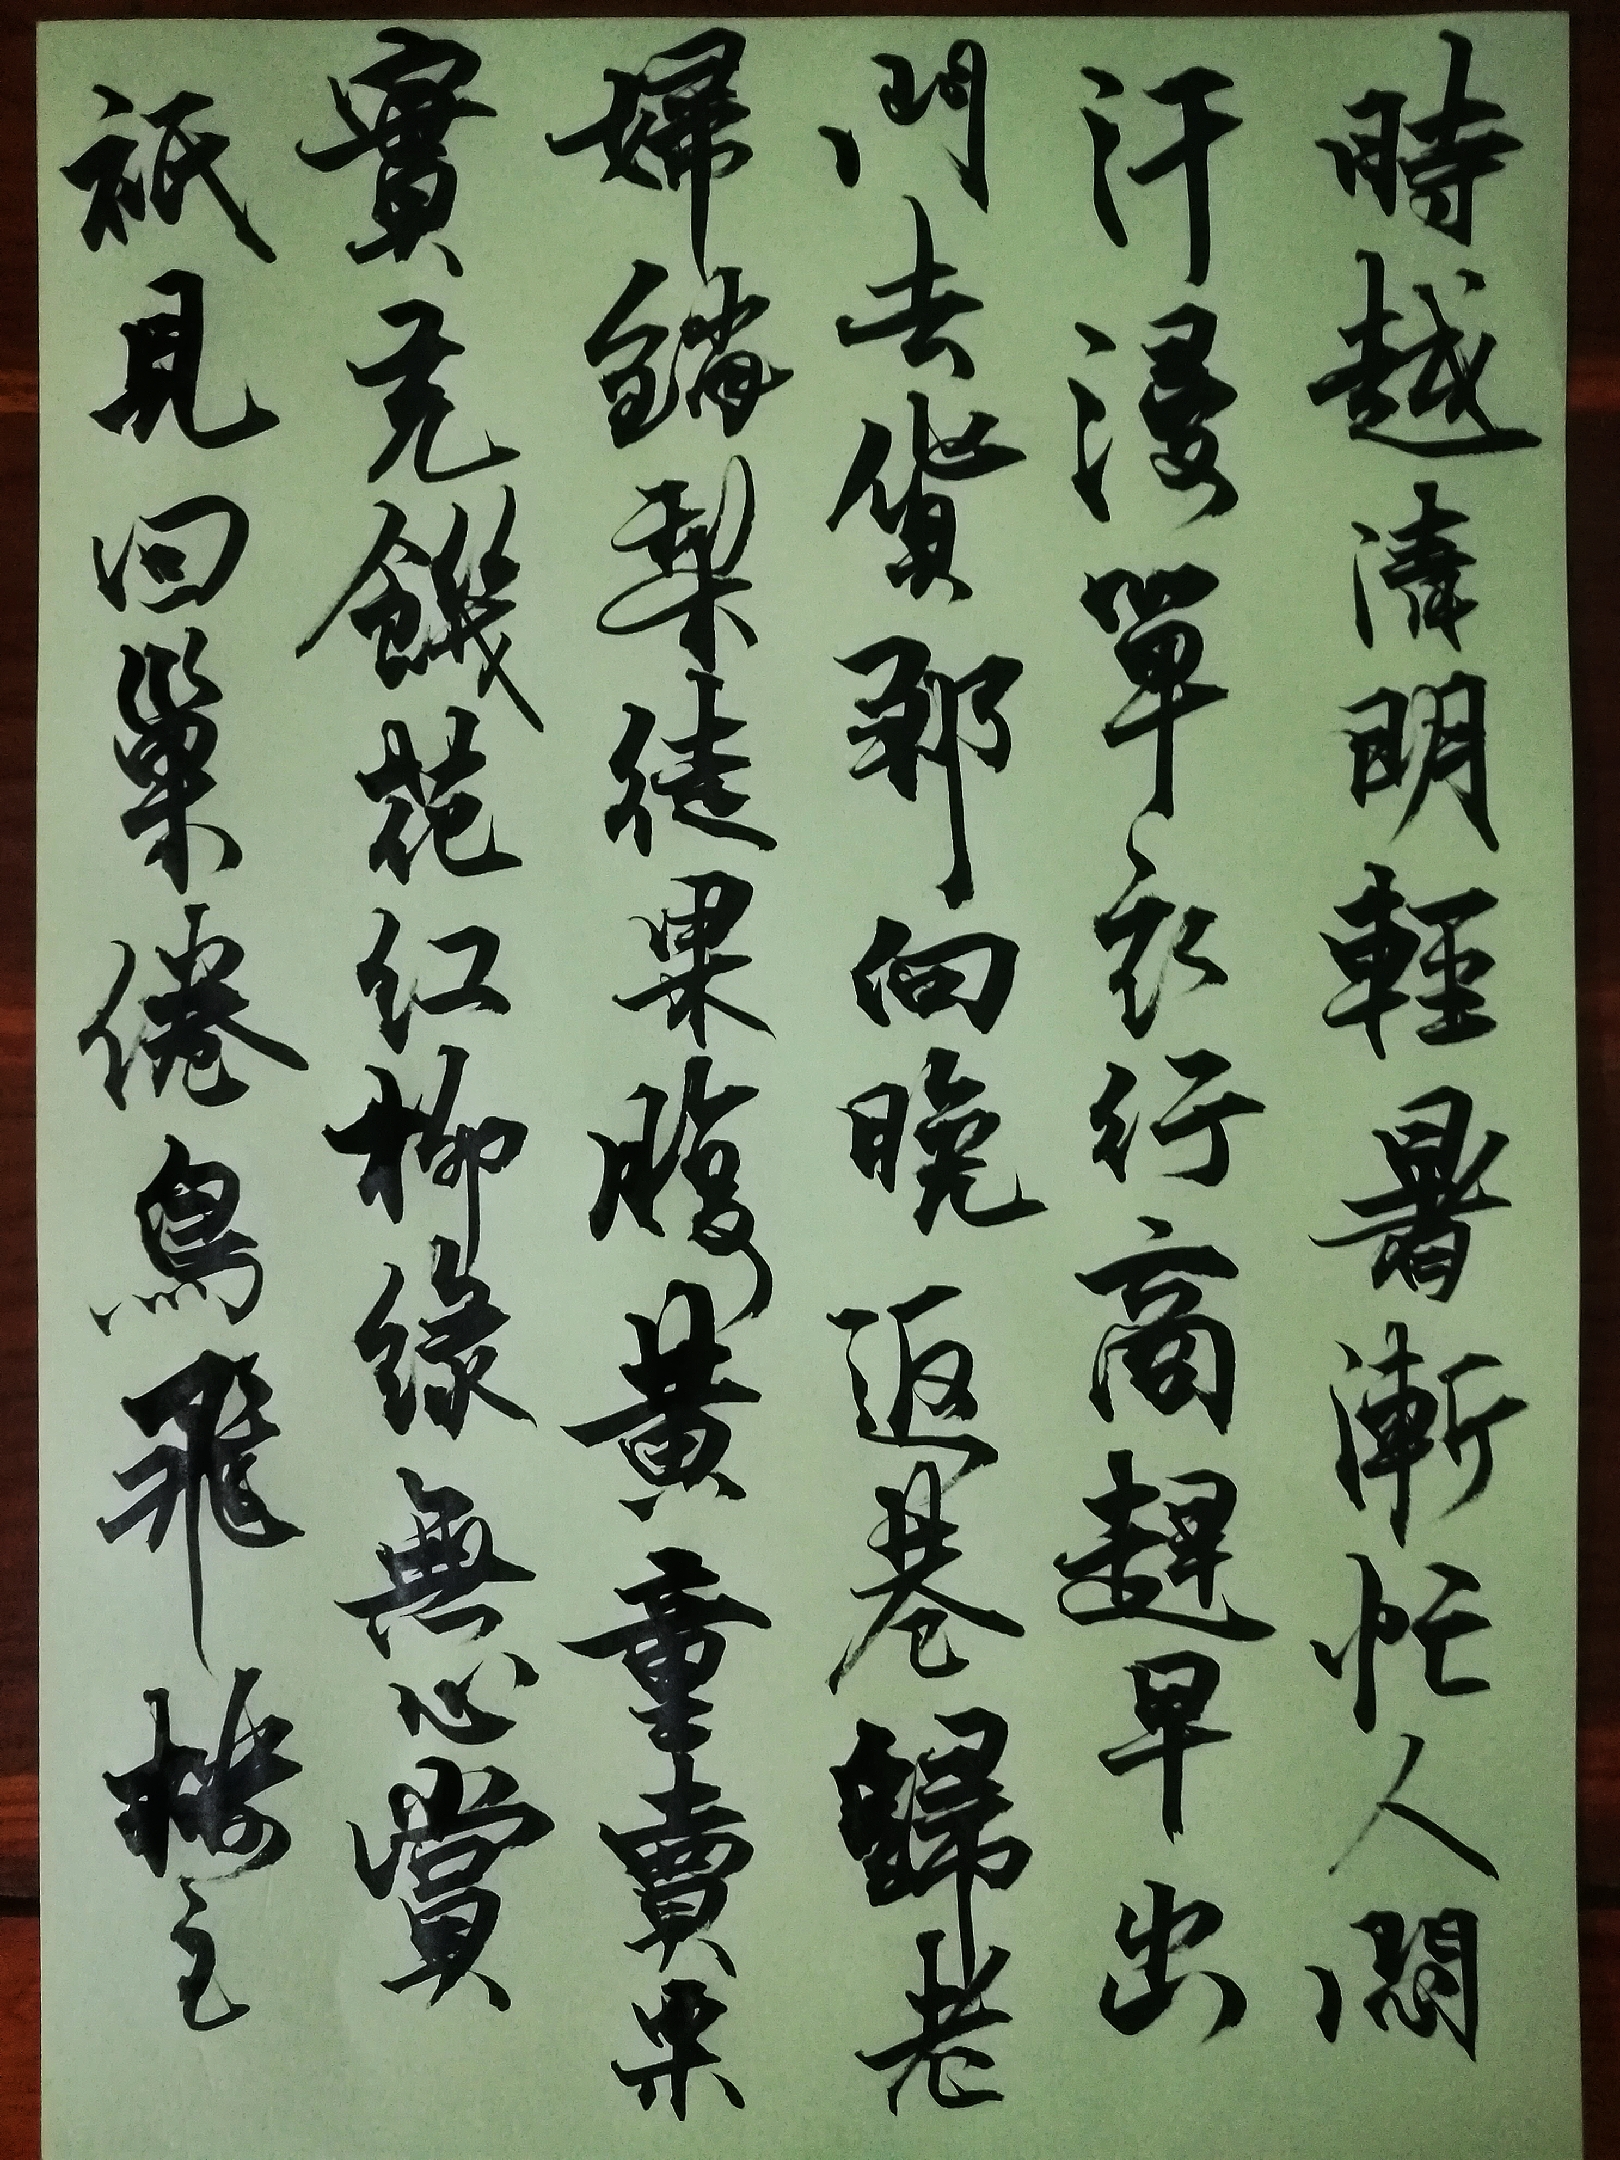 時越清明輕暑漸忙人悶
汗浸單衣行商趕早出
門去貨郎向晚返巷歸老
婦銷梨徒果腹黃童賣栗
實充饑花红柳綠無心賞
祇見回巢倦鳥飛樓主